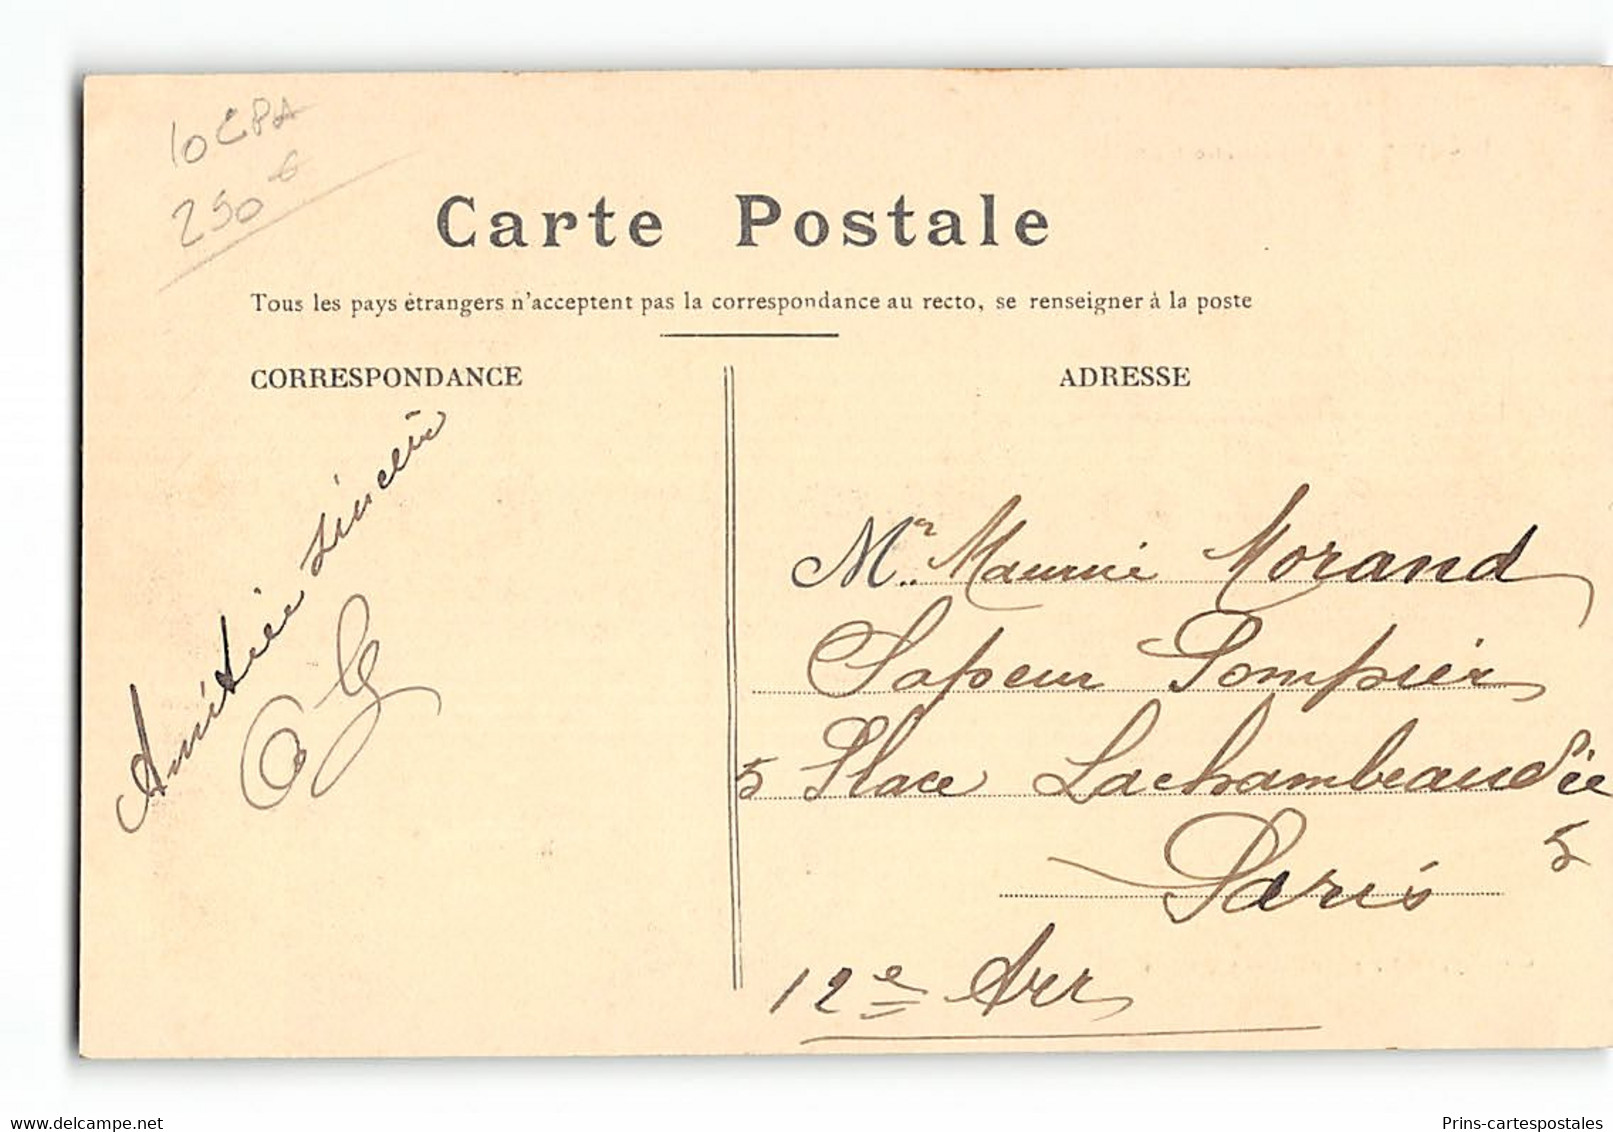 10 CPA
250 €
Carte Postale
Tous les pays étrangers n'acceptent pas la correspondance au recto, se renseigner à la poste
CORRESPONDANCE
ADRESSE
Amitiée sincère
Mr Maurice Morand
Sapeur Pompier
5 Place Lachambeaudie
5
Paris
12e Arr
delcampe.net
Prins-cartespostales